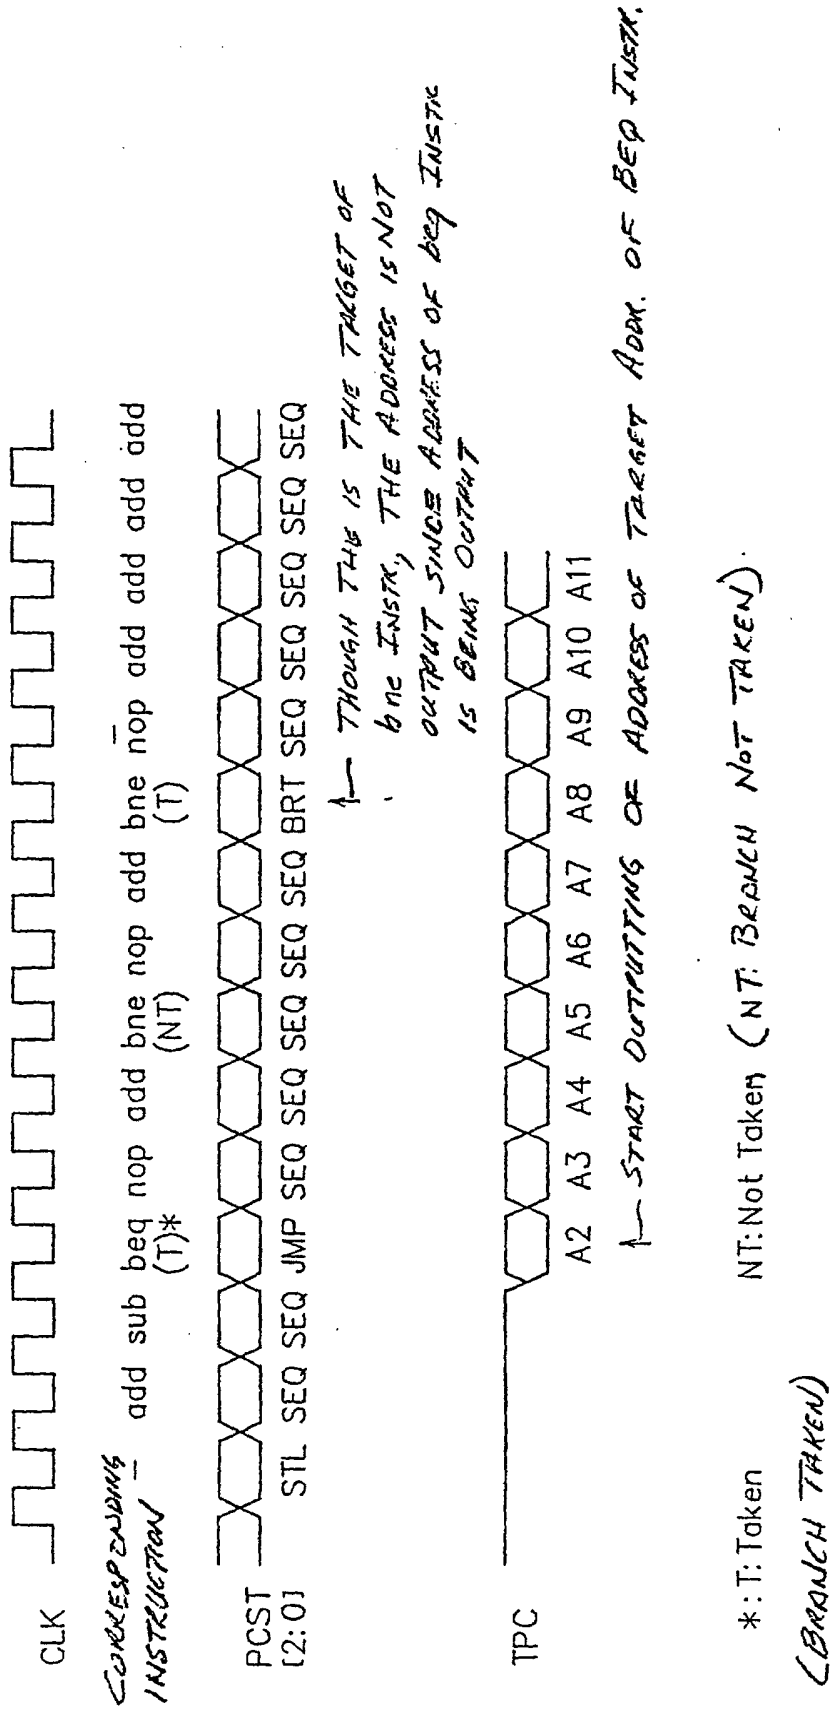 CLK
CORRESPENDING
INSTRUCTION
— add sub beq nop add bne nop add bne nop add add add add
(T)* (NT) (T)
PCST
[2:0]
STL SEQ SEQ JMP SEQ SEQ SEQ SEQ SEQ BRT SEQ SEQ SEQ SEQ SEQ
THOUGH THE IS THE TARGET OF
bne INSTR, THE ADDRESS IS NOT
OUTPUT SINCE ADDRESS OF beq INSTR
IS BEING OUTPUT
TPC
A2 A3 A4 A5 A6 A7 A8 A9 A10 A11
START OUTPUTTING OF ADDRESS OF TARGET ADDR. OF BEQ INSTR.
*: T: Taken NT: Not Taken (NT: BRANCH NOT TAKEN).
(BRANCH TAKEN)